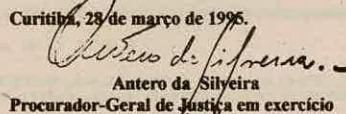 Curitiba, 28 de março de 1996.
Antero da Silveira
Antero da Silveira
Procurador-Geral de Justiça em exercício